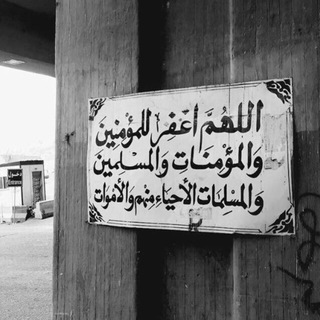 اللهم اغفر للمؤمنين
والمؤمنات والمسلمين
والمسلمات الأحياء منهم والأموات
دخول